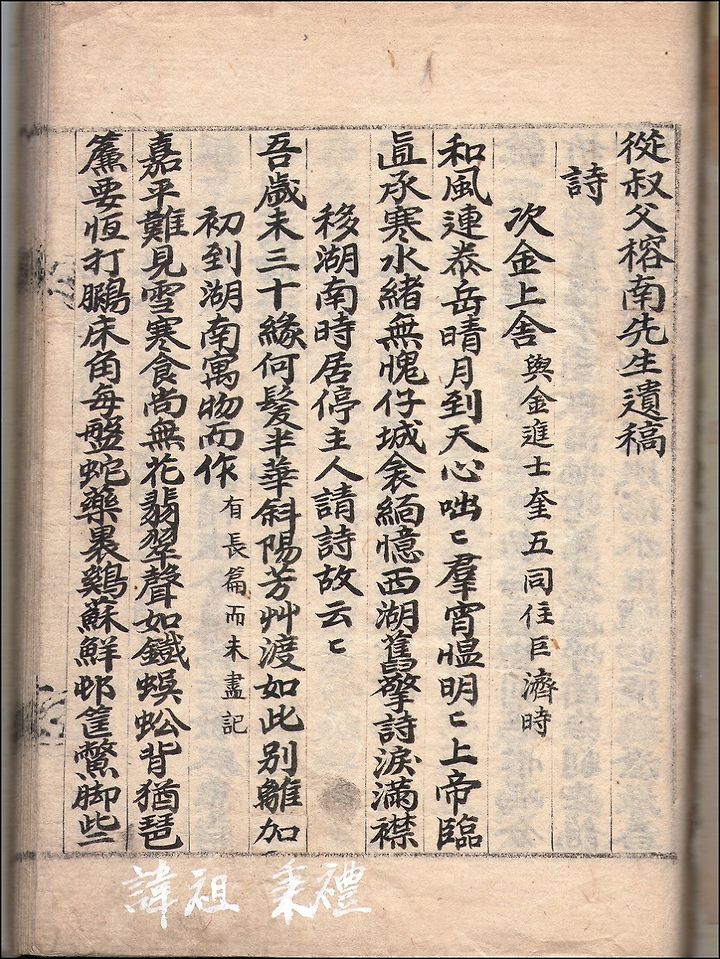 從叔父榕南先生遺稿
詩
次金上舍 與金進士奎五同住巨濟時
和風連泰岳晴月到天心咄〻羣宵慍明〻上帝臨
直承寒水緒無愧仔城衾緬憶西湖舊擎詩淚滿襟
移湖南時居停主人請詩故云〻
吾歲未三十緣何髮半華斜陽芳艸渡如此別離加
初到湖南寓物而作 有長篇而未盡記
嘉平難見雪寒食尚無花翡翠聲如鐵蜈蚣背猶琶
簷要恒打鵬床角每盤蛇藥裹鷄蘇鮮邨筐鱉脚些
諱祖 秉禮